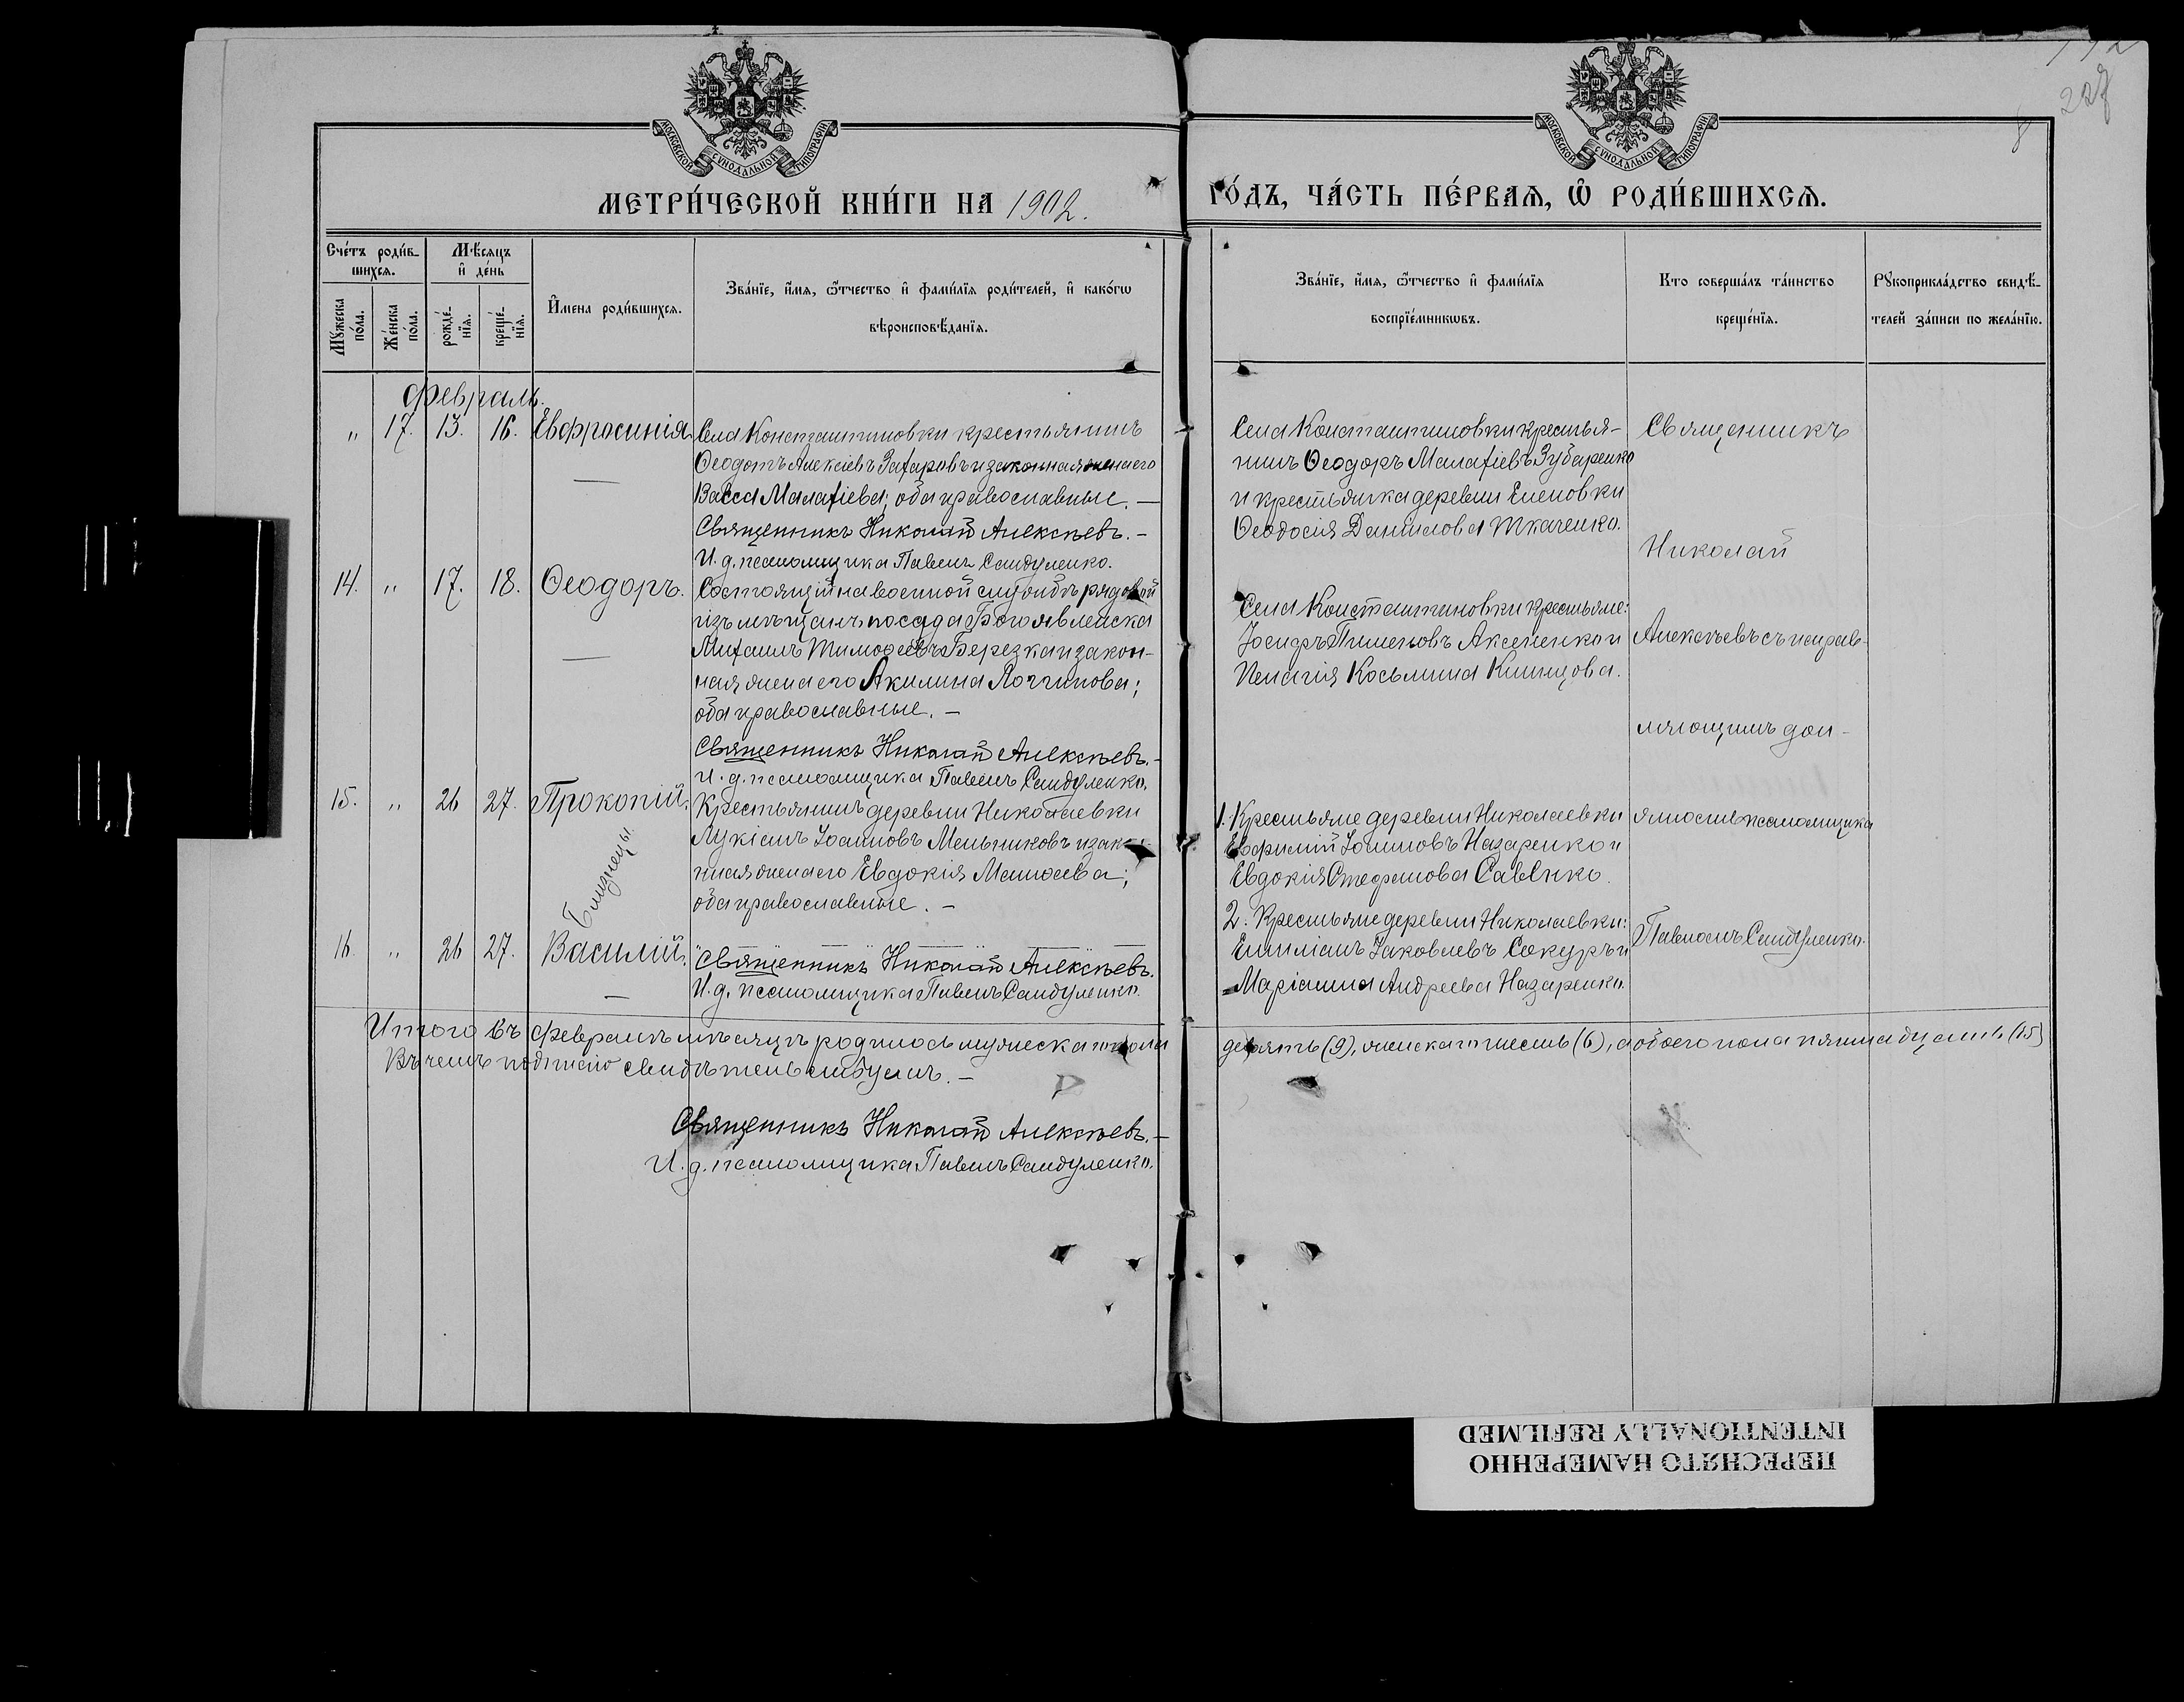 МОСКОВСКОЙ СУНОДАЛЬНОЙ ТИПОГРАФІИ
МОСКОВСКОЙ СУНОДАЛЬНОЙ ТИПОГРАФІИ
МЕТРИ́ЧЕСКОЙ КНИ́ГИ НА 1902.
ГО́ДЪ, ЧА́СТЬ ПЕ́РВАѦ, Ѡ҆ РОДИ́ВШИХСѦ.
Сче́тъ роди́в-
шихсѧ.
Мѣ́сѧцъ
и҆ де́нь
Мꙋ́жеска
по́ла.
Же́нска
по́ла.
рожде́-
нїѧ.
креще́-
нїѧ.
И҆мена роди́вшихсѧ.
Зва́нїе, и҆́мѧ, ѻ҆́тчество и҆ фами́лїѧ роди́телей, и҆ како́гѡ
вѣроисповѣ́данїѧ.
Зва́нїе, и҆́мѧ, ѻ҆́тчество и҆ фами́лїѧ
воспрїе́мникѡвъ.
Кто соверша́лъ та́инство
креще́нїѧ.
Рꙋкоприкла́дство свидѣ́-
телей за́писи по жела́нїю.
Февраль.
" 17. 13. 16. Евфросинія.
Села Константиновки крестьянинъ
Ѳеодотъ Алексіевъ Захаровъ и законная жена его
Васса Малахіева; оба православные. —
Священникъ Николай Алексѣевъ. –
И. д. псаломщика Павелъ Сандуленко.
Села Константиновки крестья-
нинъ Ѳеодоръ Малахіевъ Зубаренко
и крестьянка деревни Еленовки
Ѳеодосія Даниилова Ткаченко.
14. " 17. 18. Ѳеодоръ.
Состоящій на военной службѣ рядовой
изъ мѣщанъ посада Богоявленска
Михаилъ Тимоѳеевъ Березка и закон-
ная жена его Акилина Логгинова;
оба православные. –
Священникъ Николай Алексѣевъ. –
И. д. псаломщика Павелъ Сандуленко.
Села Константиновки крестьяне:
Іосифъ Пименовъ Аксененко и
Пелагія Косьмина
15. " 26 27. Прокопій.
Близнецы.
Крестьянинъ деревни Николаевки
Лукіанъ Іоанновъ Мельниковъ и закон-
ная жена его Евдокія
оба православные. –
1. Крестьяне деревни Николаевки
Евфимій Іоанновъ Назаренко и
Евдокія Стефанова Савенко.
16. " 26 27. Василій.
Священникъ Николай Алексѣевъ.
И. д. псаломщика Павелъ Сандуленко.
2. Крестьяне деревни Николаевки:
Емиліанъ Іаковлевъ Сокуръ и
Маріанна Андреева Назаренко.
Священникъ
Николай
Алексѣевъ съ исправ-
ляющимъ дол-
жность псаломщика
Павломъ Сандуленко.
Итого въ Февралѣ мѣсяцѣ родилось мужеска пола девять (9), женскаго шесть (6), а обоего пола пятнадцать (15)
Въ чемъ подписью свидѣтельствуемъ. –
Священникъ Николай Алексѣевъ. –
И. д. псаломщика Павелъ Сандуленко.
ПЕРЕСНЯТО НАМЕРЕННО
INTENTIONALLY REFILMED